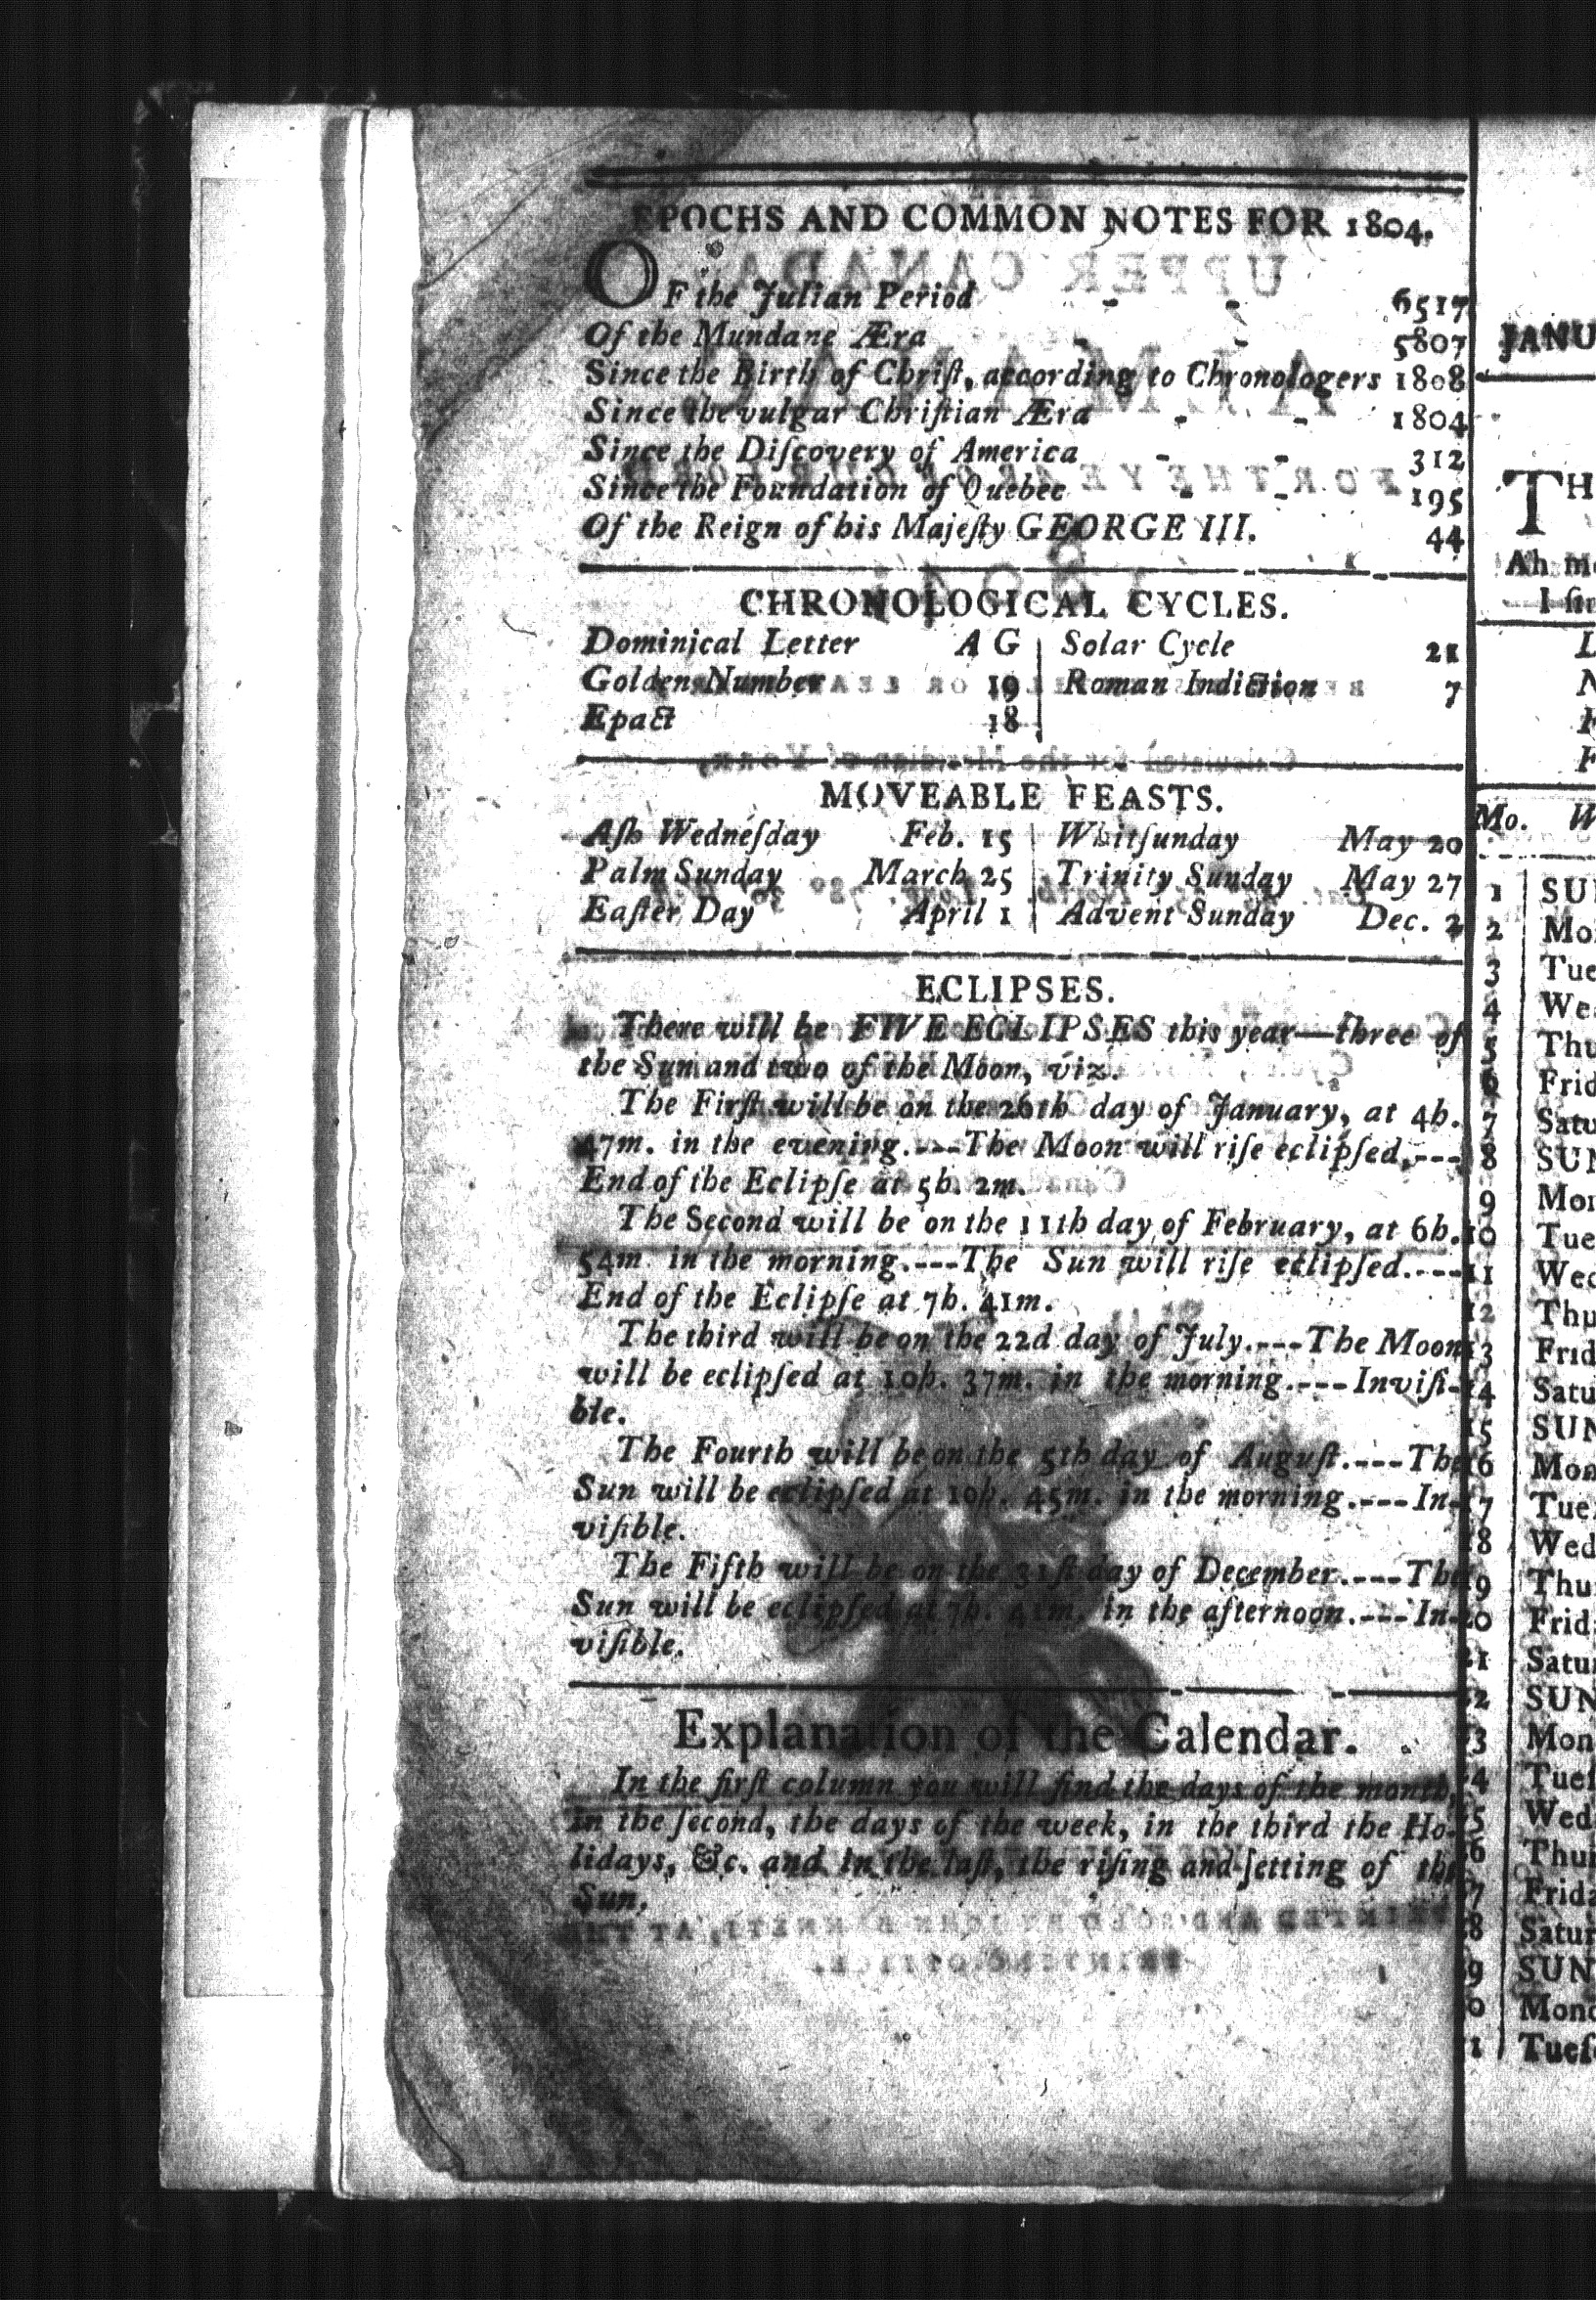 EPOCHS AND COMMON NOTES FOR 1804.
OF the Julian Period - - 6517
Of the Mundane Æra - - 5807
Since the Birth of Chriſt, according to Chronologers 1808
Since the vulgar Chriſtian Æra - - 1804
Since the Diſcovery of America - - 312
Since the Foundation of Quebec - - 195
Of the Reign of his Majeſty GEORGE III. 44
CHRONOLOGICAL CYCLES.
Dominical Letter A G | Solar Cycle 21
Golden Number 19 | Roman Indiction 7
Epact 18
MOVEABLE FEASTS.
Aſh Wedneſday Feb. 15 | Whitſunday May 20
Palm Sunday March 25 | Trinity Sunday May 27
Eaſter Day April 1 | Advent Sunday Dec. 2
ECLIPSES.
There will be FIVE ECLIPSES this year—three of
the Sun and two of the Moon, viz.
The Firſt will be on the 26th day of January, at 4h.
47m. in the evening.---The Moon will riſe eclipſed,---
End of the Eclipſe at 5h. 2m.
The Second will be on the 11th day of February, at 6h.
54m. in the morning.---The Sun will riſe eclipſed.---
End of the Eclipſe at 7h. 41m.
The third will be on the 22d day of July.---The Moon
will be eclipſed at 10h. 37m. in the morning.---Inviſi-
ble.
The Fourth will be on the 5th day of Auguſt.---The
Sun will be eclipſed at 10h. 45m. in the morning.---In-
viſible.
The Fifth will be on the 31ſt day of December.---The
Sun will be eclipſed at 7h. 41m. in the afternoon.---In-
viſible.
Explanation of the Calendar.
In the firſt column you will find the days of the month,
in the ſecond, the days of the week, in the third the Ho-
lidays, &c. and in the laſt, the riſing and ſetting of the
Sun.
JANU
TH
Ah m
I ſin
L
N
F
F
Mo. W
1 SU
2 Mo
3 Tue
4 We
5 Thu
6 Frid
7 Satu
8 SUN
9 Mon
10 Tue
11 Wed
12 Thu
13 Frid
14 Satu
15 SUN
16 Mon
17 Tue
18 Wed
19 Thu
20 Frid
21 Satu
22 SUN
23 Mon
24 Tueſ
25 Wed
26 Thur
27 Frida
28 Satur
29 SUN
30 Mond
31 Tueſ